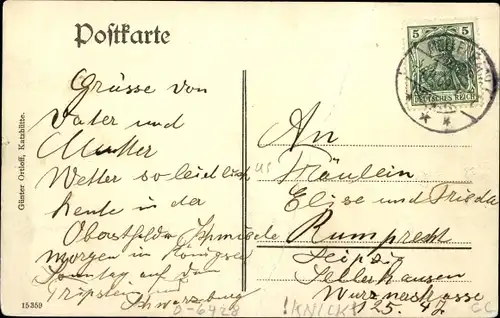 Postkarte
5 5
DEUTSCHES REICH
Günter Ortloff, Katzhütte.
Grüsse von
Vater und
Mutter
Wetter so leidlich
heute in der
Obstfelder Schmiede
morgen in Königsee
Sonntag auf dem
Tripstein und
Schwarzburg
An
Fräulein
Elise und Frieda
Rumprecht
Leipzig
Sellerhausen
Wurznerstrasse
125. 47.
15359
0-6428
!KNICK!